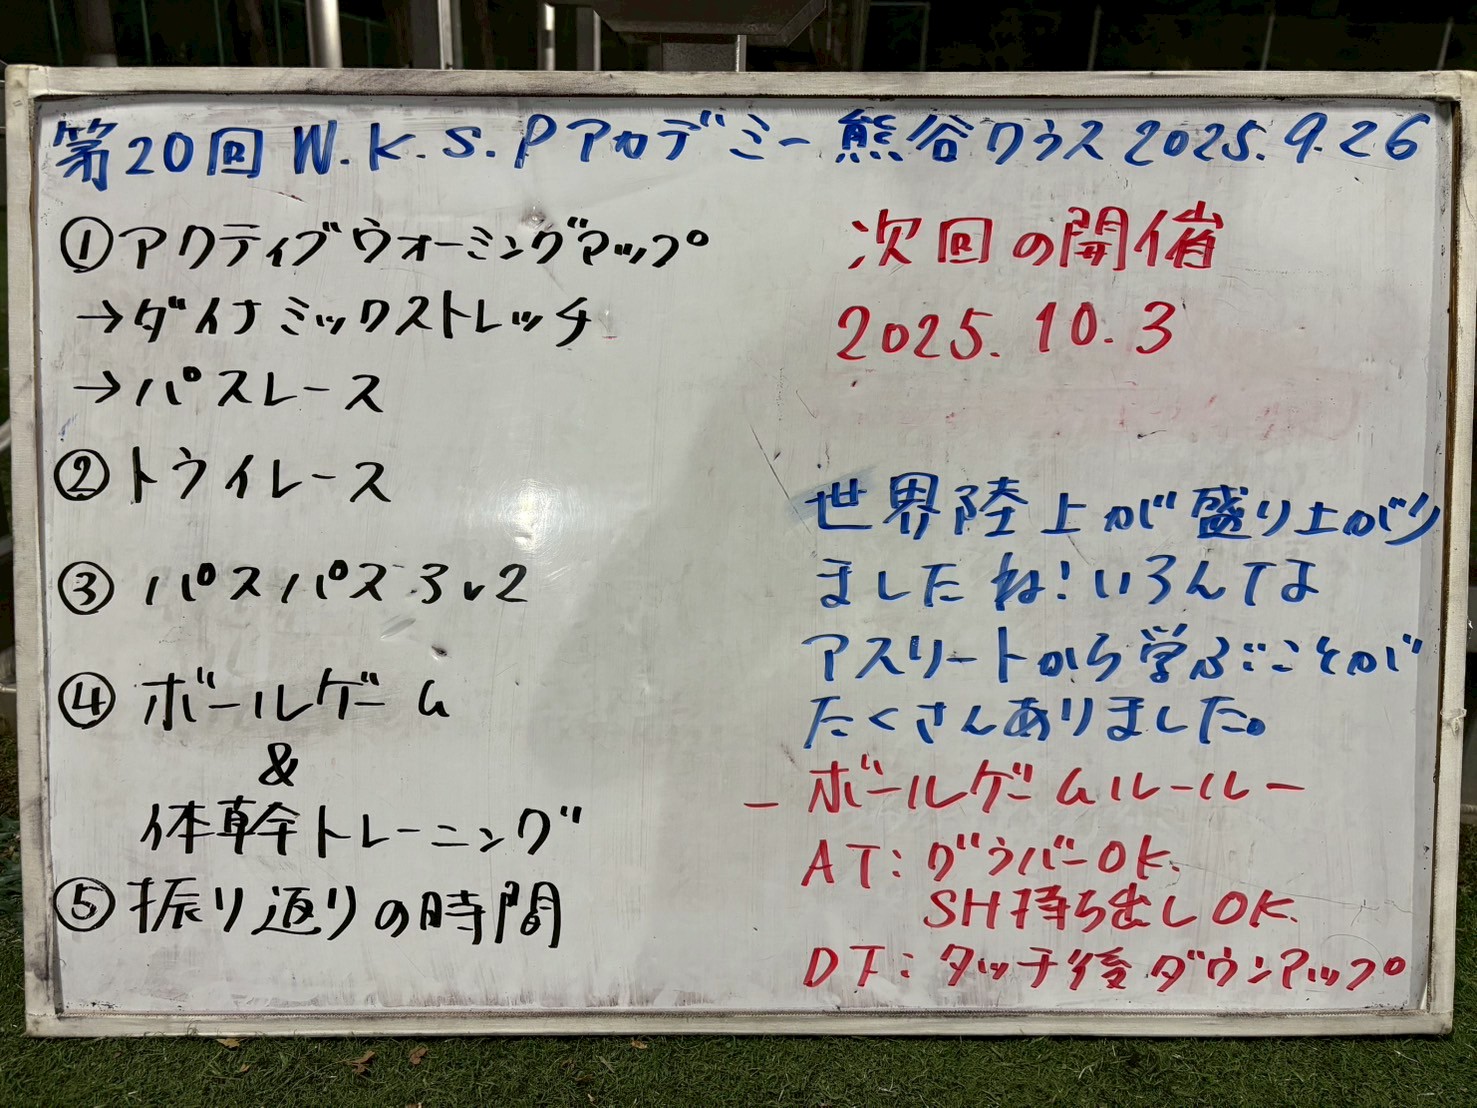 第20回 W.K.S.Pアカデミー 熊谷クラス 2025.9.26
①アクティブウォーミングアップ
→ダイナミックストレッチ
→パスレース
②トライレース
③パスパス3v2
④ボールゲーム
&
体幹トレーニング
⑤振り返りの時間
次回の開催
2025.10.3
世界陸上が盛り上がり
ましたね!いろんな
アスリートから学ぶことが
たくさんありました。
-ボールゲームルール-
AT:グラバーOK.
SH持ち出しOK.
DF:タッチ後ダウンアップ